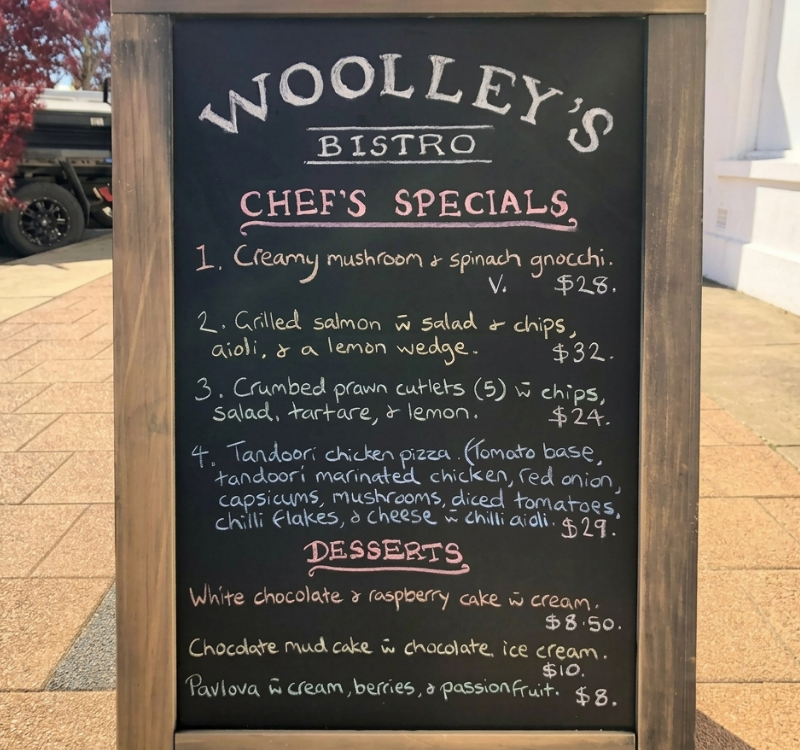 WOOLLEY'S
BISTRO
CHEF'S SPECIALS
1. Creamy mushroom & spinach gnocchi.
V. $28.
2. Grilled salmon w̄ salad & chips,
aioli, & a lemon wedge. $32.
3. Crumbed prawn cutlets (5) w̄ chips,
salad, tartare, & lemon. $24.
4. Tandoori chicken pizza. (Tomato base,
tandoori marinated chicken, red onion,
capsicums, mushrooms, diced tomatoes,
chilli flakes, & cheese w̄ chilli aioli. $29.
DESSERTS
White chocolate & raspberry cake w̄ cream.
$8.50.
Chocolate mud cake w̄ chocolate ice cream.
$10.
Pavlova w̄ cream, berries, & passionfruit. $8.